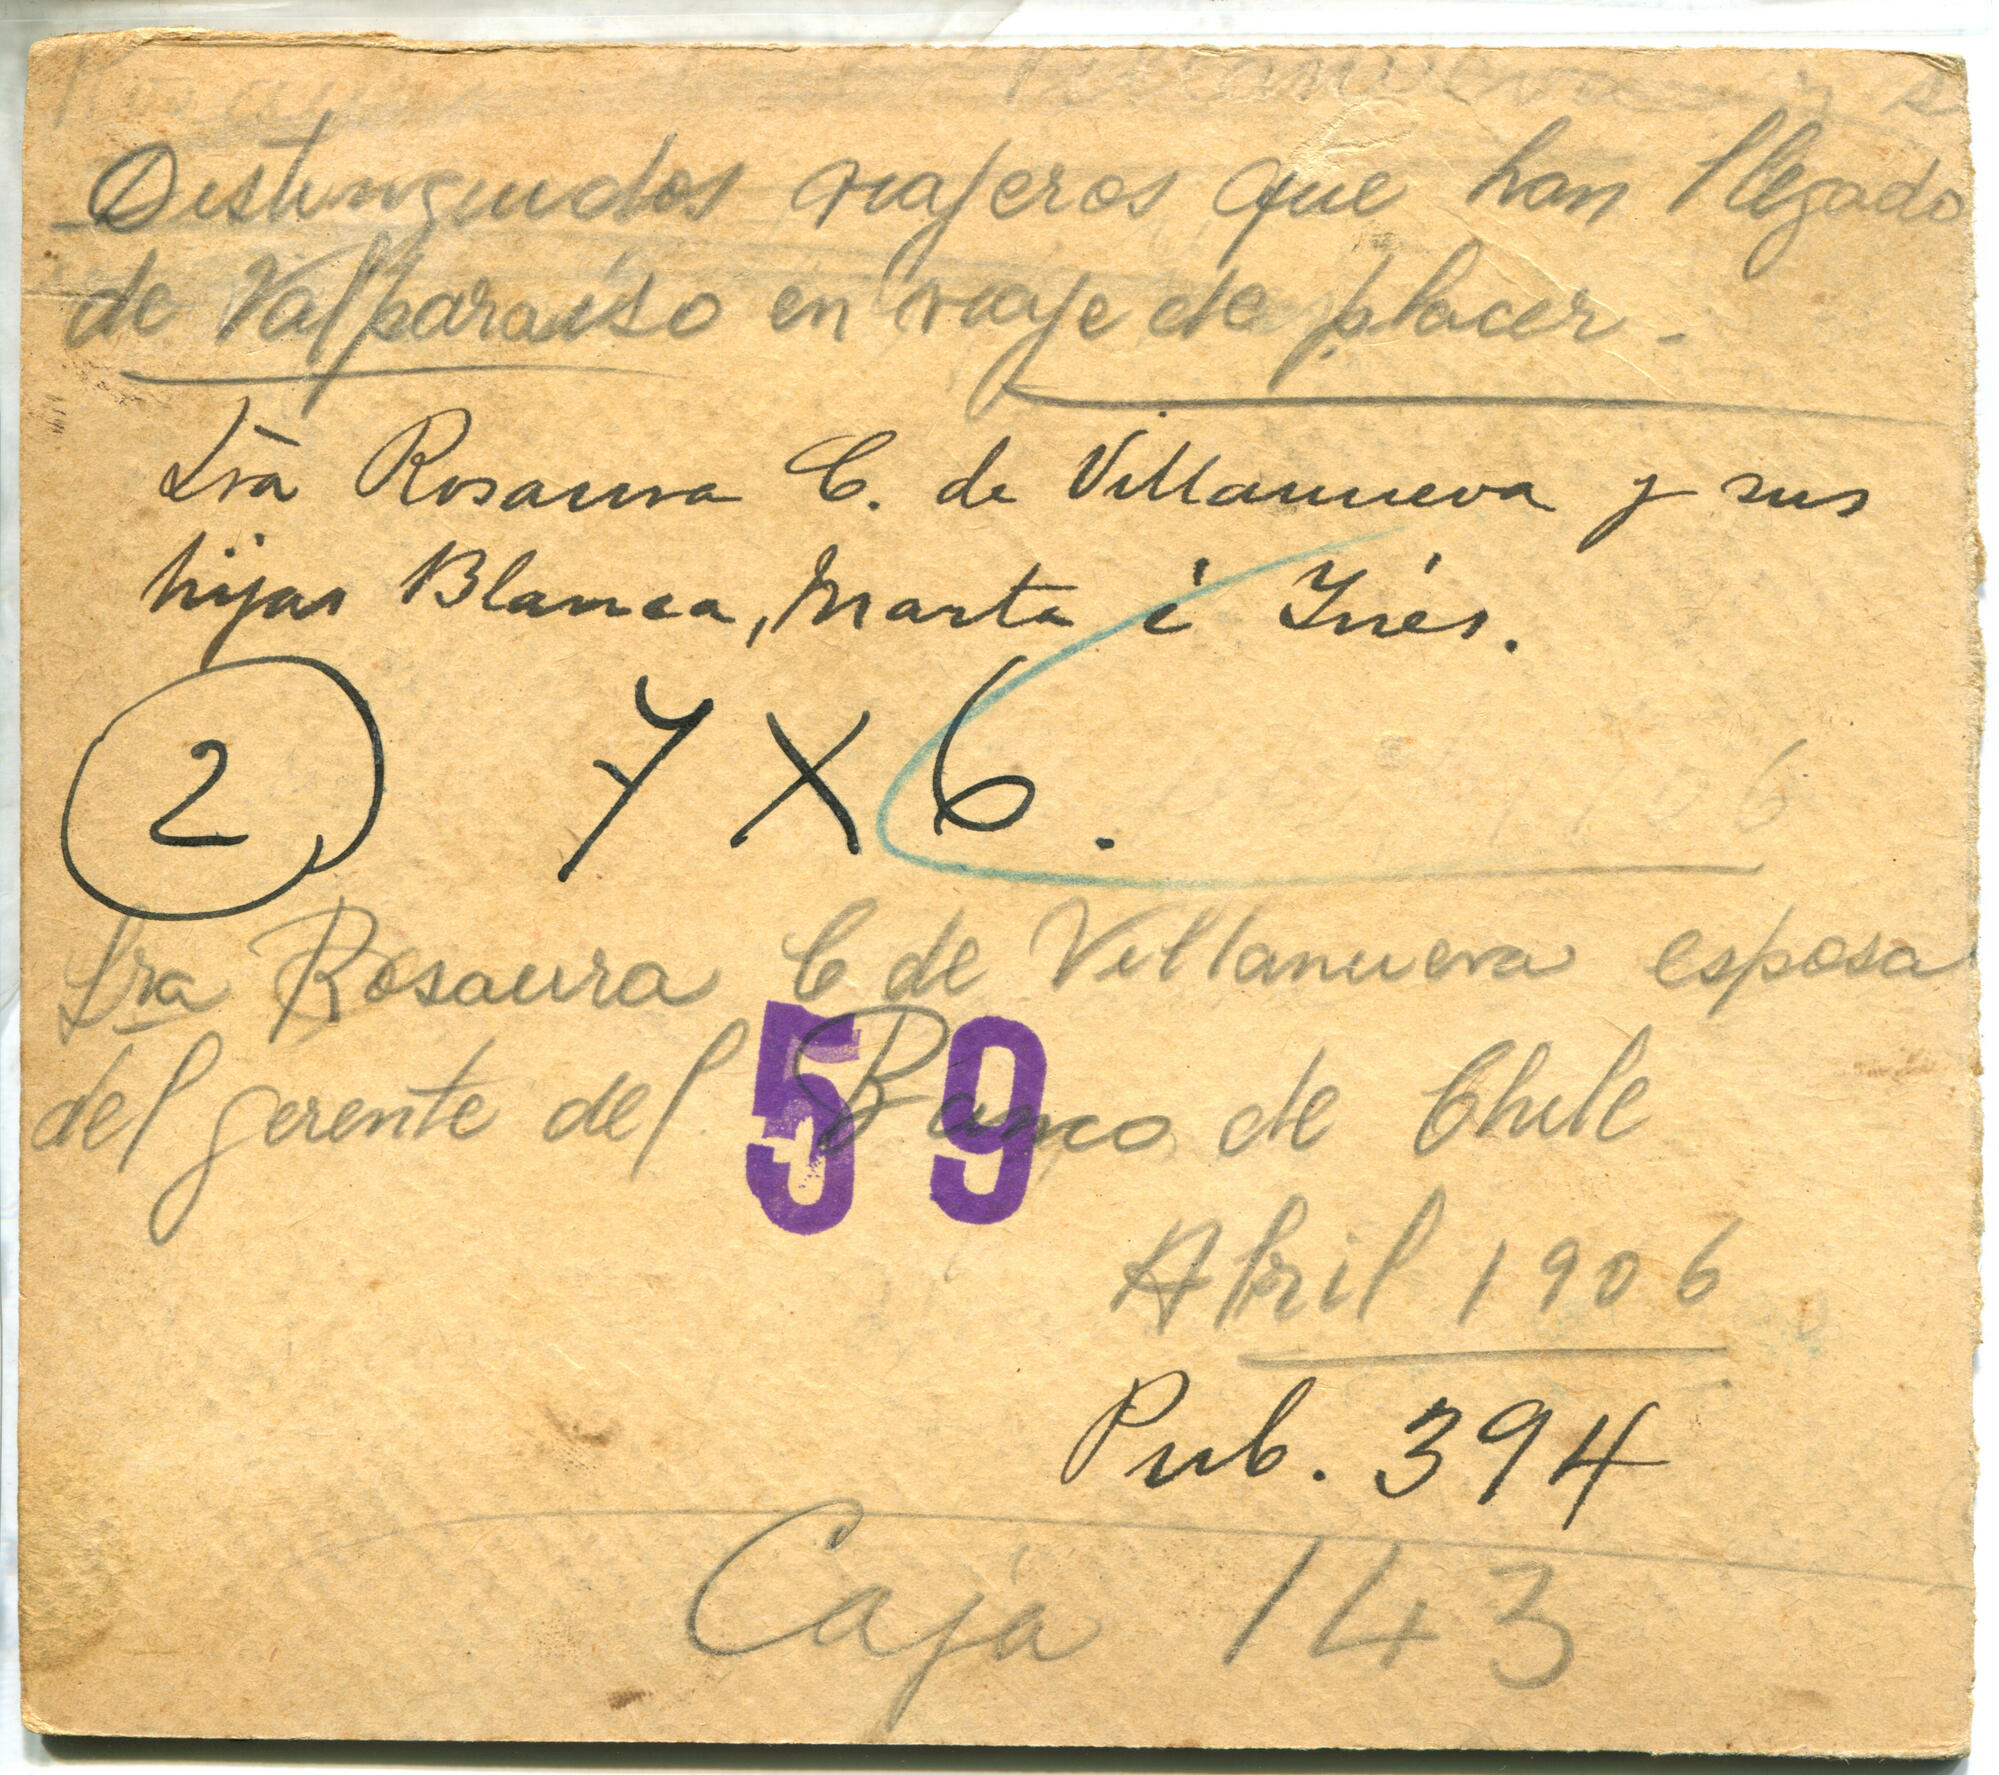 Distinguidos viajeros que han llegado
de Valparaíso en viaje de placer.-
Sra Rosaura C. de Villanueva y sus
hijas Blanca, Marta i Inés.
2 7 X 6.
Sra Rosaura C de Villanueva esposa
del gerente del Banco de Chile
59
Abril 1906
Pub. 394
Caja 143